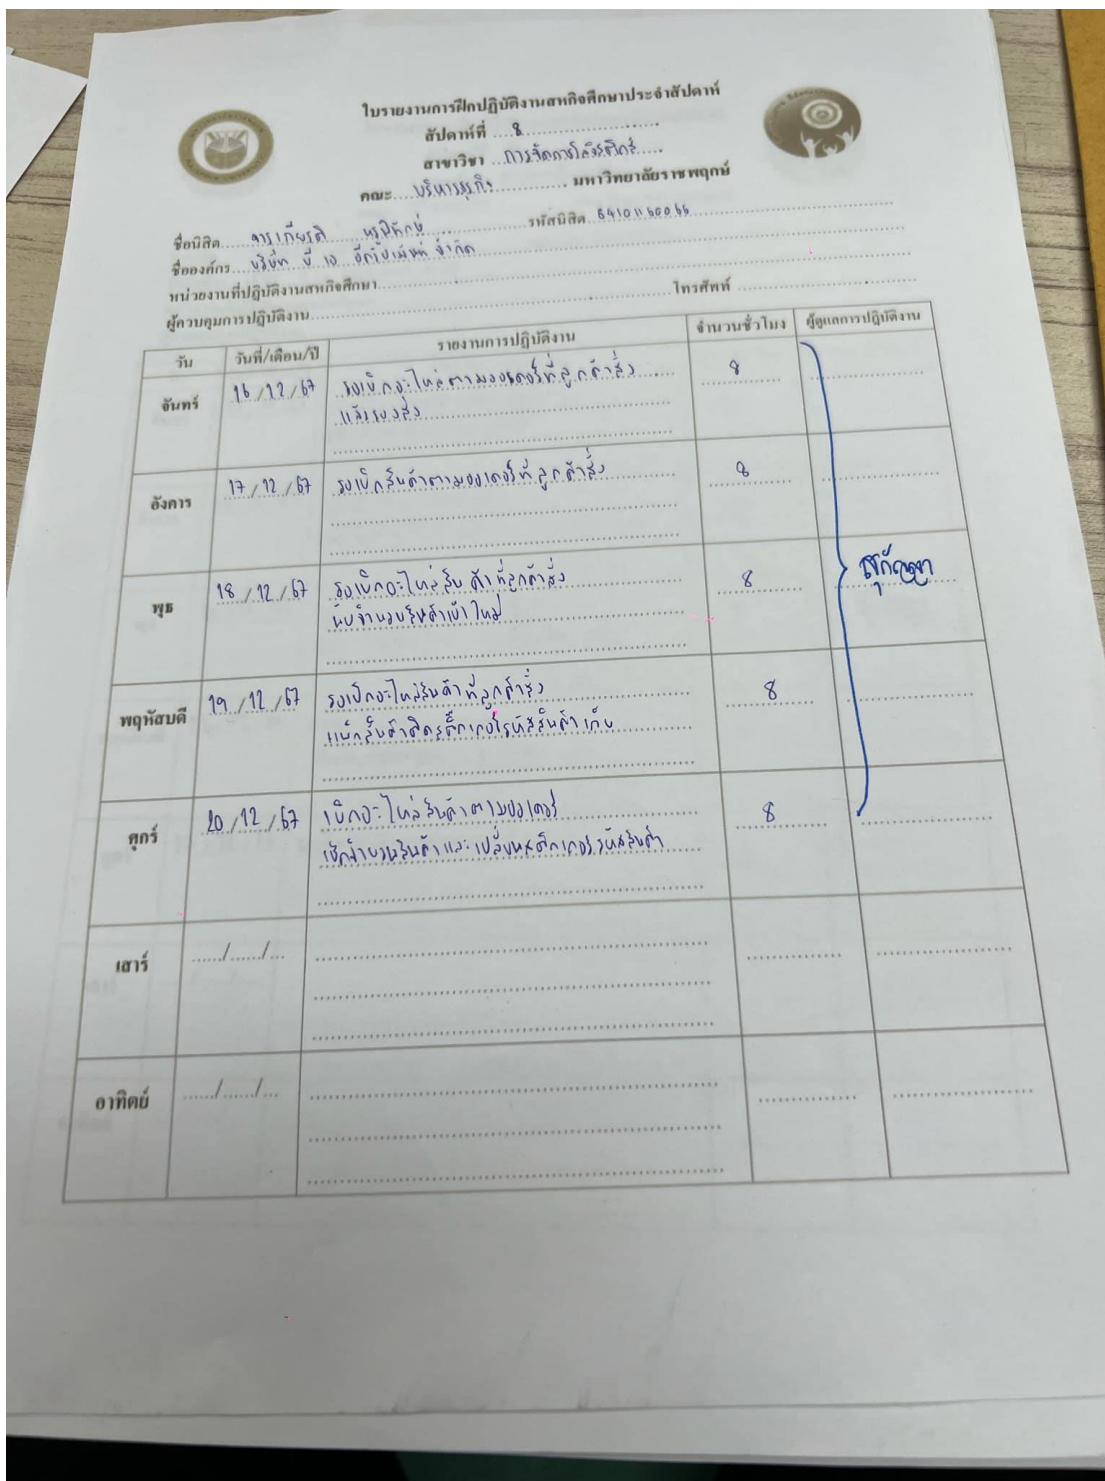 ใบรายงานการฝึกปฏิบัติงานสหกิจศึกษาประจำสัปดาห์
สัปดาห์ที่ 8
สาขาวิชา การจัดการโลจิสติกส์
คณะ บริหารธุรกิจ มหาวิทยาลัยราชพฤกษ์
ชื่อนิสิต รหัสนิสิต
ชื่อองค์กร บริษัท บี เอ จำกัด
หน่วยงานที่ปฏิบัติงานสหกิจศึกษา
ผู้ควบคุมการปฏิบัติงาน โทรศัพท์
วัน วันที่/เดือน/ปี รายงานการปฏิบัติงาน จำนวนชั่วโมง ผู้ดูแลการปฏิบัติงาน
จันทร์ 16/12/67 รอเบิกอะไหล่ตามออเดอร์ที่ลูกค้าสั่ง 8
อังคาร 17/12/67 รอเบิกสินค้าตามออเดอร์ที่ลูกค้าสั่ง 8
พุธ 18/12/67 รอเบิกอะไหล่สินค้าที่ลูกค้าสั่ง 8 สุกัญญา
นับจำนวนสินค้าเข้าใหม่
พฤหัสบดี 19/12/67 รอเบิกอะไหล่สินค้าที่ลูกค้าสั่ง 8
แพ็กสินค้าติดสติ๊กเกอร์รหัสสินค้า เก็บ
ศุกร์ 20/12/67 เบิกอะไหล่สินค้าตามออเดอร์ 8
เช็คจำนวนสินค้าและเปลี่ยนสติกเกอร์รหัสสินค้า
เสาร์ / /
อาทิตย์ / /